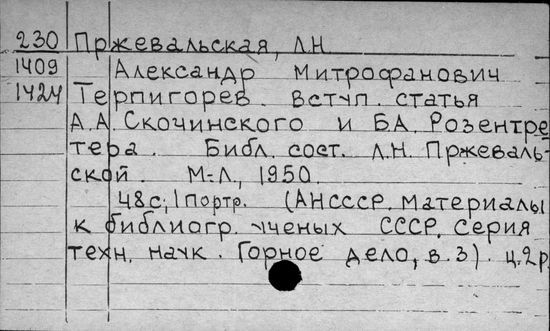 230 Пржевальская, Л.Н.
1409 Александр Митрофанович
1424 Терпигорев. Вступ. статья
А.А. Скочинского и Б.А. Розентре-
тера. Библ. сост. Л.Н. Пржеваль-
ской. М-Л, 1950.
48с; 1 портр. (АНСССР. Материалы
к библиогр. ученых СССР. Серия
техн. наук. Горное дело, в. 3). ц. 2р.